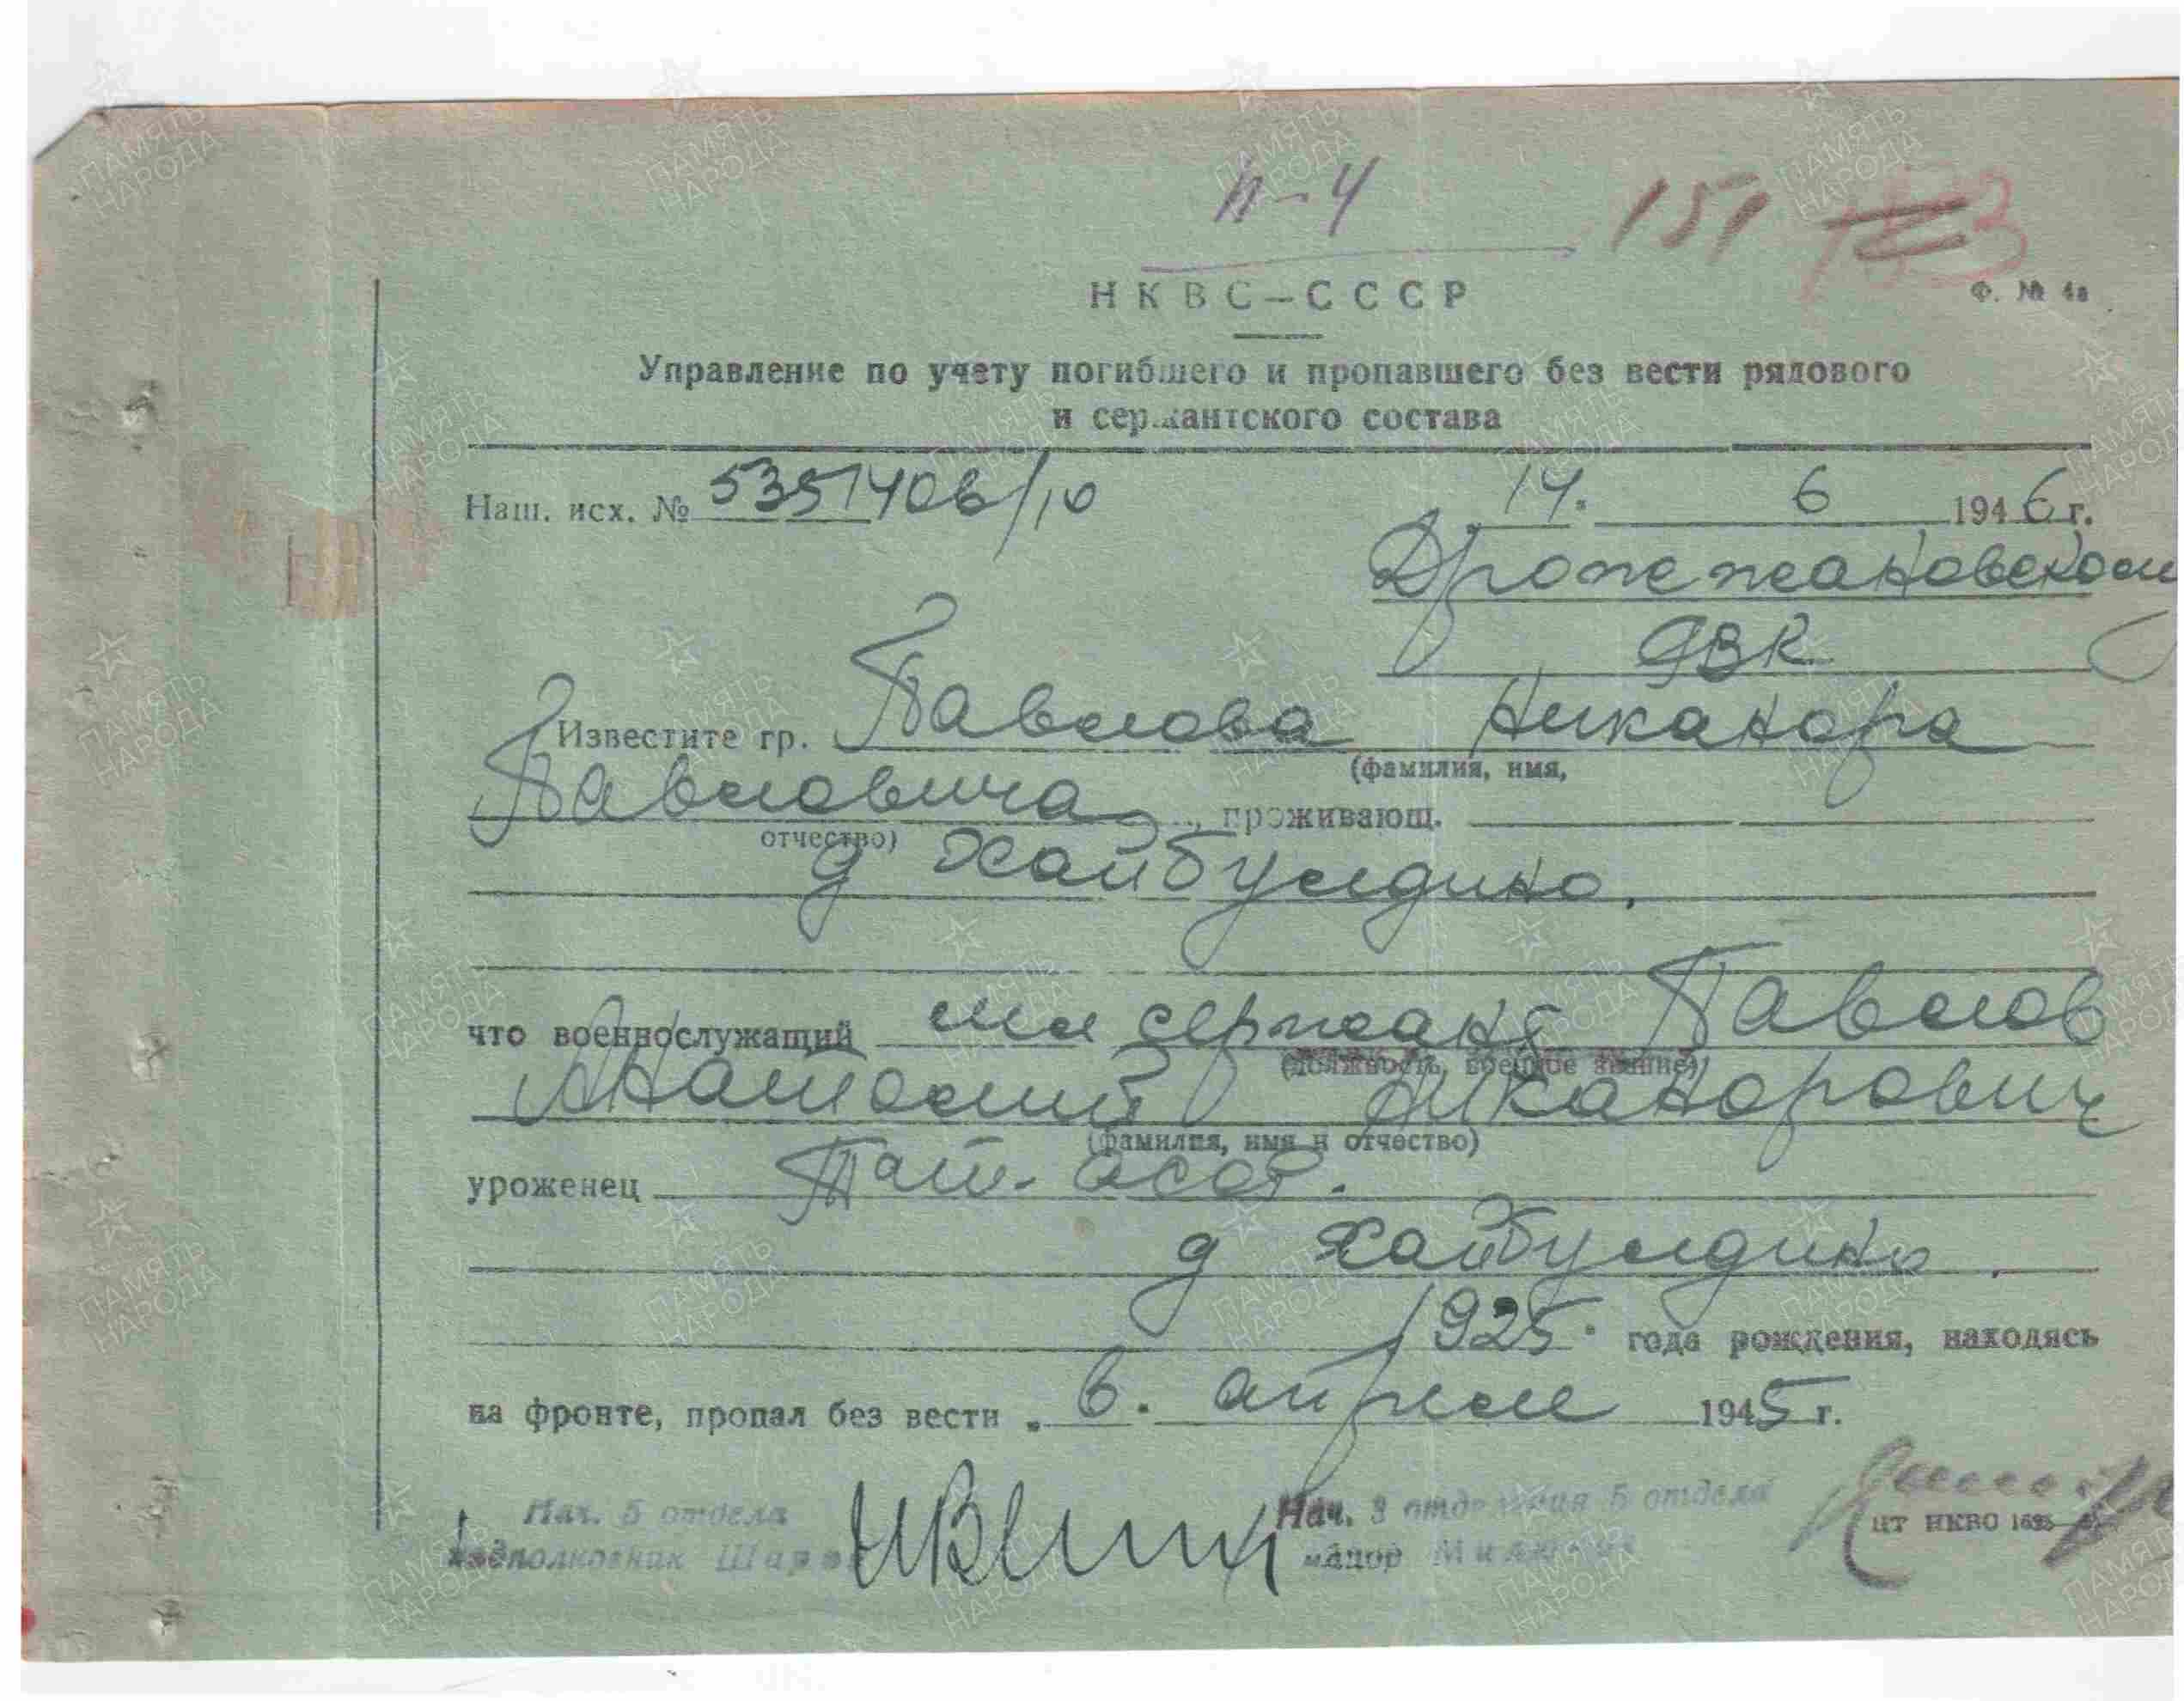 п-4 151
НКВС—СССР
Ф. № 4а
Управление по учету погибшего и пропавшего без вести рядового
и сержантского состава
Наш. исх. № 5351406/10 14. 6 1946 г.
Дрожжановскому
РВК
Известите гр. Павлова Никанора
(фамилия, имя,
Павловича, проживающ.
отчество)
д Хайбулдино.
что военнослужащий мл сержант Павлов
(должность, военное звание)
Анатолий Никанорович
(фамилия, имя и отчество)
уроженец Тат. АССР.
д Хайбулдино.
1925. года рождения, находясь
на фронте, пропал без вести „ в. апреле 1945 г.
Нач. 5 отдела Нач. 3 отделения 5 отдела
подполковник майор
ЦТ НКВО
ПАМЯТЬ
НАРОДА